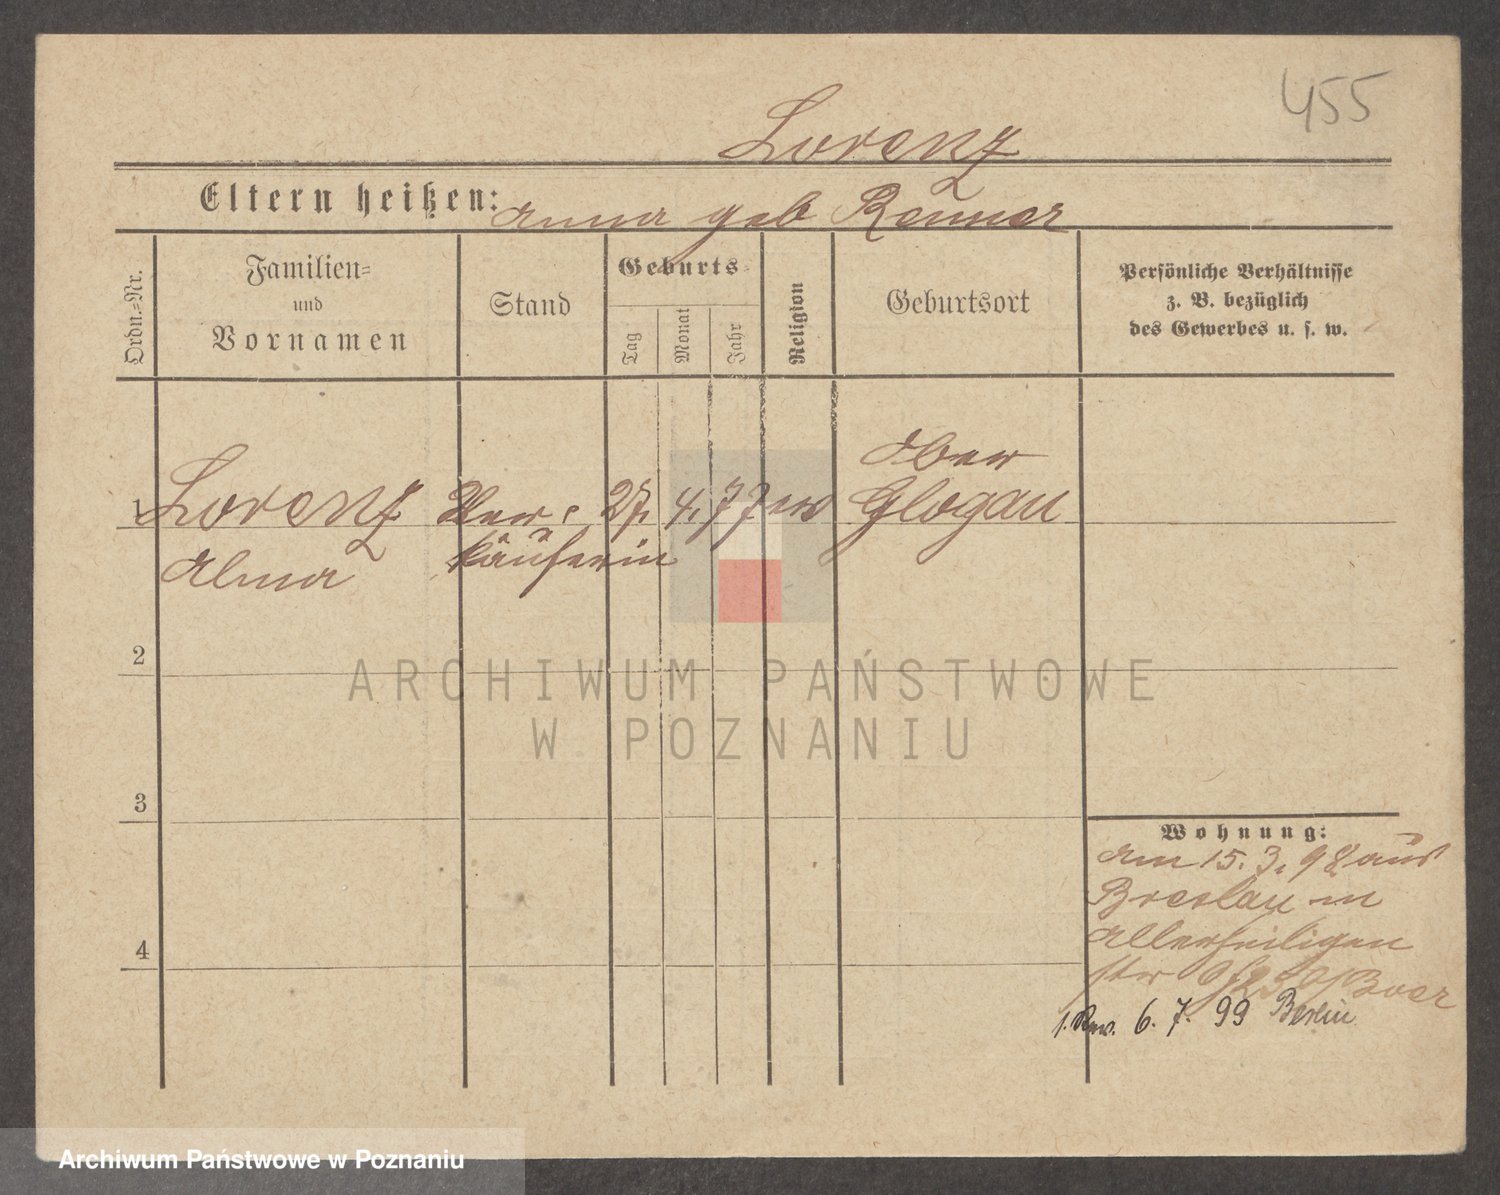 455
Lorenz
Eltern heißen: Anna geb Renner
Ordn.=Nr.
Familien=
und
Vornamen
Stand
Geburts=
Tag
Monat
Jahr
Religion
Geburtsort
Persönliche Verhältnisse
z. B. bezüglich
des Gewerbes u. s. w.
1 Lorenz Ver= 27. 4. 77 ev Ober
Glogau
Alma käuferin
2
ARCHIWUM PAŃSTWOWE
W POZNANIU
3
4
Wohnung:
Am 15. 3. 98 aus
Breslau in
Allerheiligen
str
6. 7. 99 Berlin
Archiwum Państwowe w Poznaniu